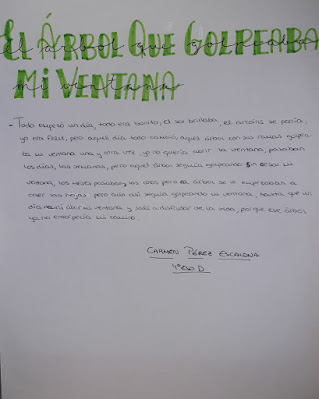 EL ÁRBOL QUE GOLPEABA
MI VENTANA
- Todo empezó un día, todo era bonito, el sol brillaba, el arcoíris se ponía,
yo era feliz, pero aquel día todo cambió, aquel árbol con sus ramas golpea
ba mi ventana una y otra vez, yo no quería abrir la ventana, pasaban
los días, las semanas, pero aquel árbol seguía golpeando sin cesar mi
ventana, los meses pasaban y los años pero el árbol se le empezaban a
caer las hojas pero aún así seguía golpeando mi ventana, hasta que un
día abrí mi ventana y salí a disfrutar de la vida, porque ese árbol
ya no entorpecía mi camino.
CARMEN PÉREZ ESCALONA
4º ESO D